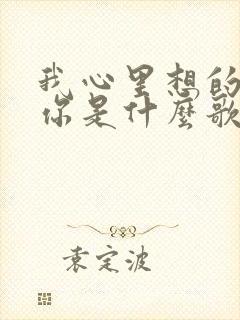 我心里想的
你是什麼歌
袁定波